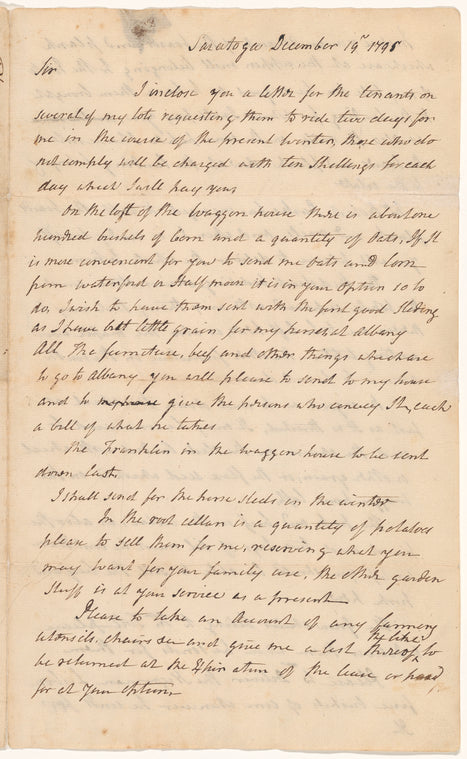 Saratoga December 19th 1795
Sir
I inclose you a letter for the tenants on
several of my lots requesting them to ride two days for
me in the course of the present winter, those who do
not comply will be charged with ten Shillings for each
day which I will pay you
On the loft of the Waggon house there is about one
hundred bushels of Corn and a quantity of Oats, If It
is more convenient for you to send me Oats and Corn
from waterford or Half moon it is in your Option so to
do, I wish to have them sent with the first good Sleding
as I have but little grain for my horses at albany
All the furniture, beef and other things which are
to go to albany you will please to send to my house
and to my house give the persons who convey It, each
a bill of what he takes
The Franklin in the Waggon house to be sent
down last
I shall send for the horse Sleds in the winter
In the root cellar is a quantity of potatoes
please to sell them for me, reserving what you
may want for your family use, the other garden
stuff is at your service as a present
Please to take an Account of any farming
utensils, chairs &c and give me a list thereof, to
be returned at the Expiration of the lease or paid
for at your option